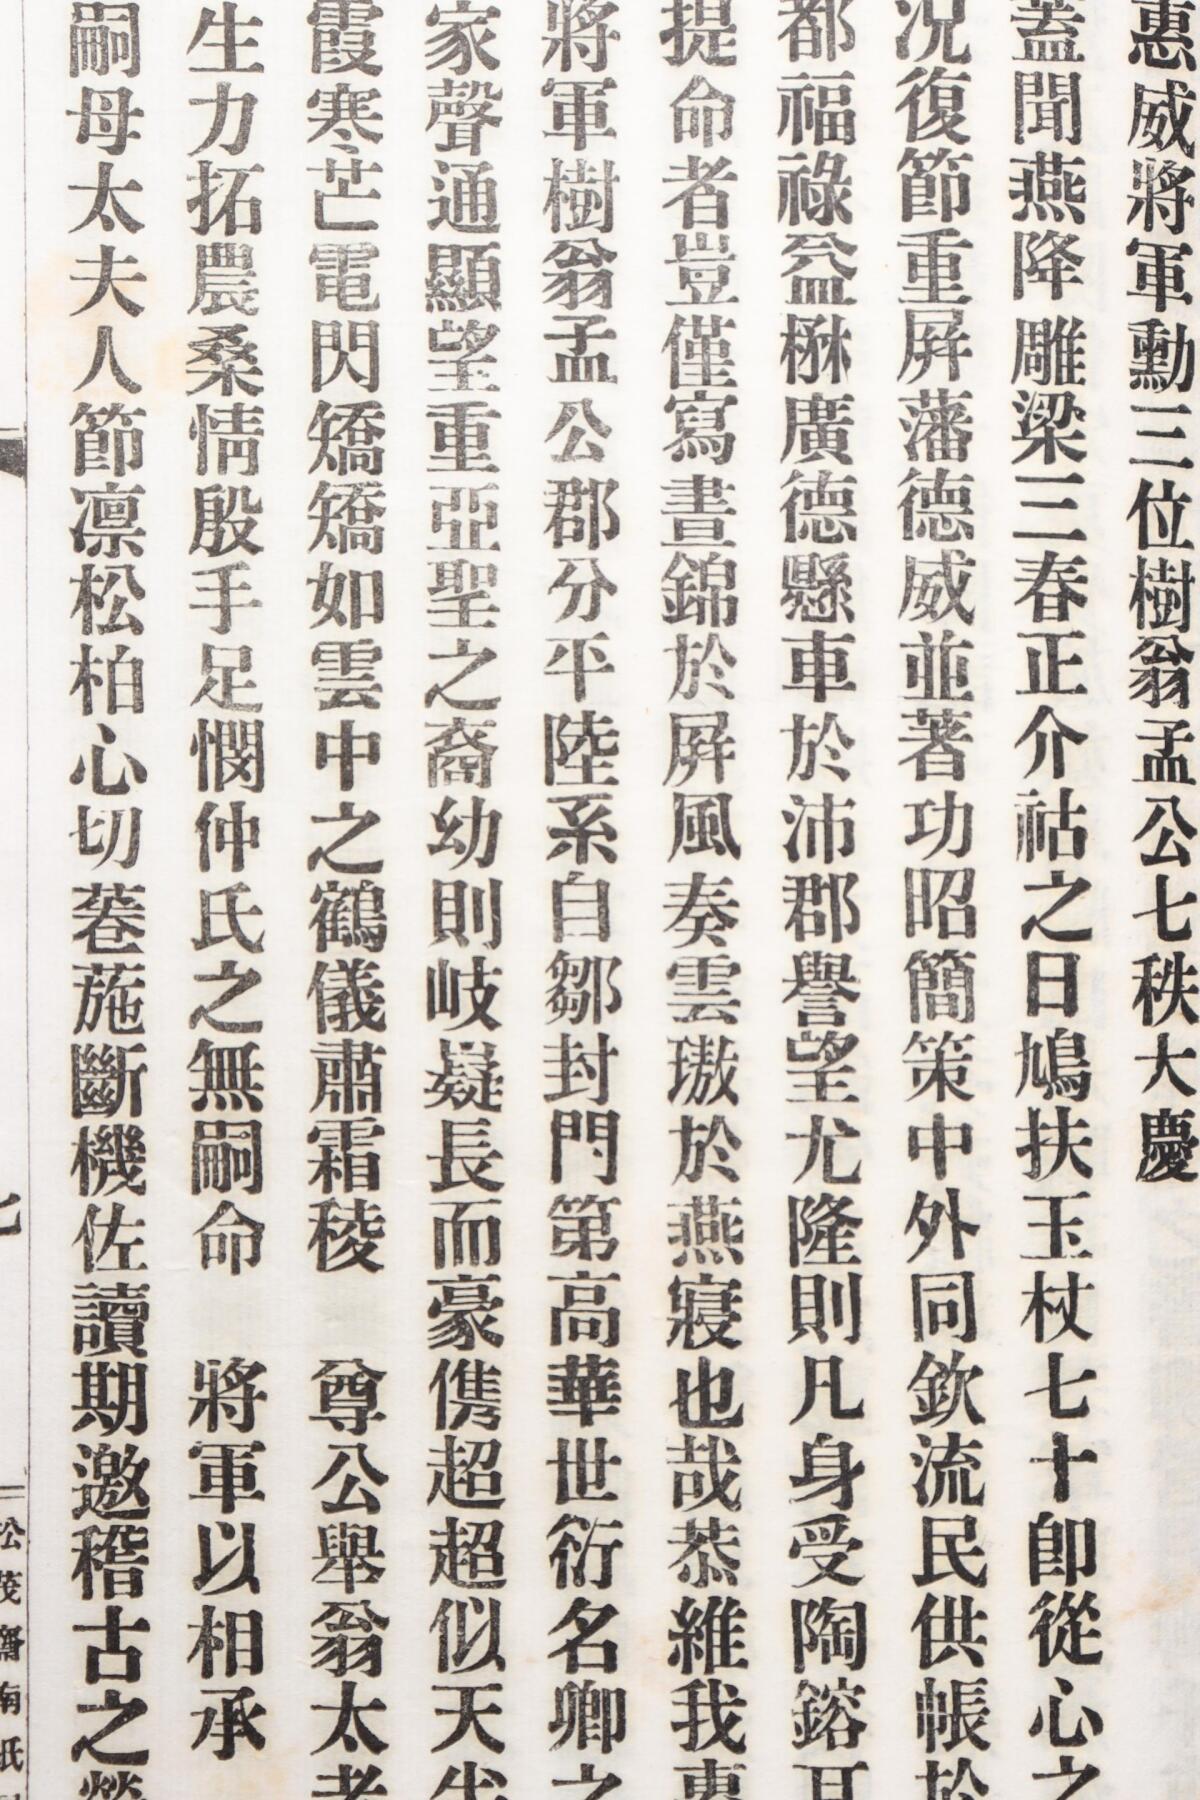 惠威將軍勳三位樹翁孟公七秩大慶
蓋聞燕降雕梁三春正介祜之日鳩扶玉杖七十卽從心之
況復節重屛藩德威並著功昭簡策中外同欽流民供帳於
都福祿益楙廣德懸車於沛郡譽望尤隆則凡身受陶鎔耳
提命者豈僅寫晝錦於屛風奏雲璈於燕寢也哉恭維我惠
將軍樹翁孟公郡分平陸系自鄒封門第高華世衍名卿之
家聲通顯望重亞聖之裔幼則岐嶷長而豪儁超超似天半
霞寒芒電閃矯矯如雲中之鶴儀肅霜稜　尊公舉翁太老
生力拓農桑情殷手足憫仲氏之無嗣命　將軍以相承
嗣母太夫人節凛松柏心切菤葹斷機佐讀期邀稽古之榮
松茂齋南氏